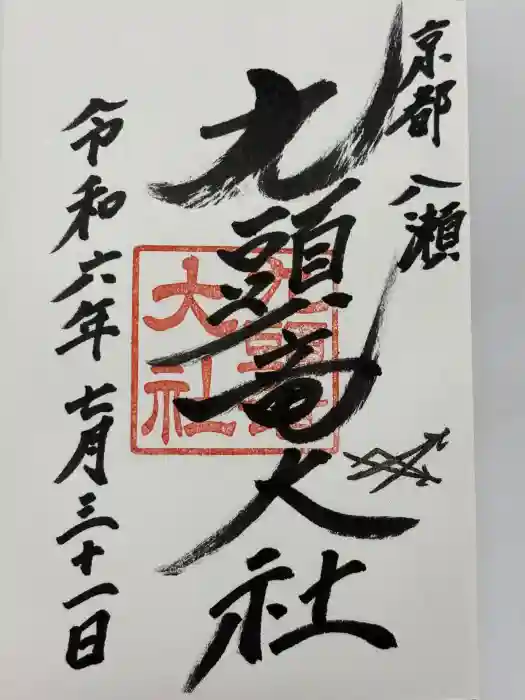 京都 八瀬
九頭竜大社
九頭竜
大社
令和六年七月三十一日